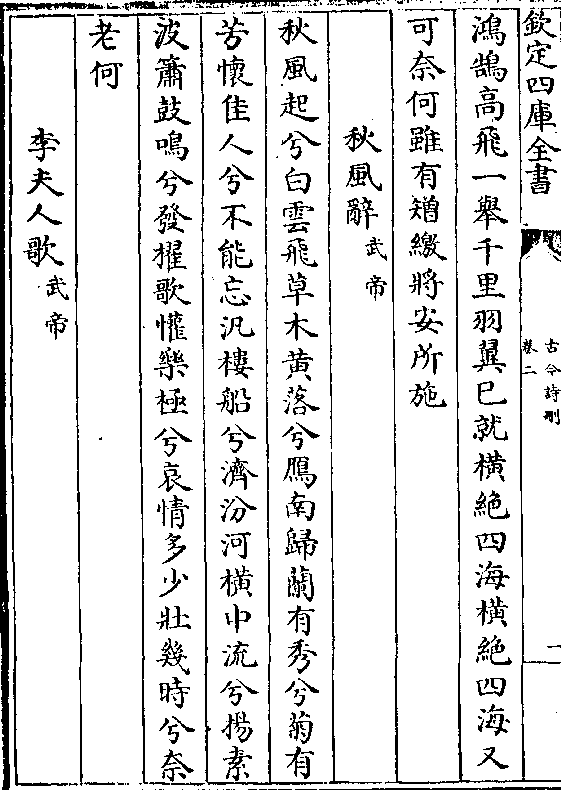 欽定四庫全書
古今詩刪
卷二
一
鴻鵠高飛一舉千里羽翼已就橫絶四海橫絶四海又
可奈何雖有矰繳將安所施
秋風辭 武帝
秋風起兮白雲飛草木黄落兮鴈南歸蘭有秀兮菊有
芳懷佳人兮不能忘汎樓船兮濟汾河橫中流兮揚素
波簫鼓鳴兮發櫂歌懽樂極兮哀情多少壯幾時兮奈
老何
李夫人歌 武帝